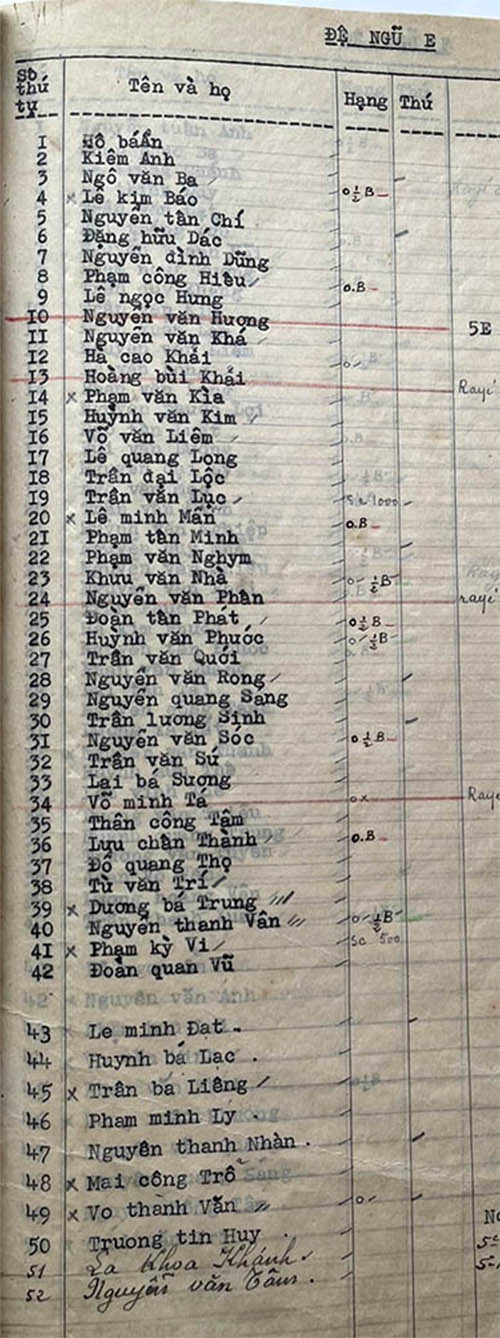 ĐỆ NGŨ E
Số thứ tự Tên và họ Hạng Thứ
I Hồ bá Ẩn
2 Kiêm Anh
3 Ngô văn Ba
4 x Lê kim Báo o ½ B
5 Nguyễn tấn Chí
6 Đặng hữu Dác
7 Nguyễn đình Dũng
8 Phạm công Hiếu o.B
9 Lê ngọc Hưng
I0 Nguyễn văn Hương 5E
II Nguyễn văn Khá
I2 Hà cao Khải
I3 Hoàng bùi Khải Rayé
I4 x Phạm văn Kìa
I5 Huỳnh văn Kim
I6 Võ văn Liêm
I7 Lê quang Long
I8 Trần đại Lộc
I9 Trần văn Lục 1000
20 x Lê minh Mẫn o.B
2I Phạm tấn Minh
22 Phạm văn Nghym
23 Khưu văn Nhà o ½ B
24 Nguyễn văn Phân rayé
25 Đoàn tấn Phát o ½ B
26 Huỳnh văn Phước o ½ B
27 Trần văn Quới
28 Nguyễn văn Rong
29 Nguyễn quang Sáng
30 Trần lương Sinh
3I Nguyễn văn Sóc o ½ B
32 Trần văn Sú
33 Lại bá Sương
34 Võ minh Tá o x Rayé
35 Thân công Tâm
36 Lưu chấn Thành o.B
37 Đỗ quang Thọ
38 Từ văn Trí
39 x Dương bá Trung
40 Nguyễn thanh Vân o ½ B
4I x Phạm kỳ Vi sc 500
42 Đoàn quan Vũ
43 Le minh Đat
44 Huynh bá Lac .
45 x Trân bá Liêng
46 Pham minh Ly .
47 Nguyên thanh Nhàn .
48 x Mai công Trổ
49 x Vo thành Văn
50 Truong tin Huy
51 La Khoa Khánh
52 Nguyễn văn Tâm .